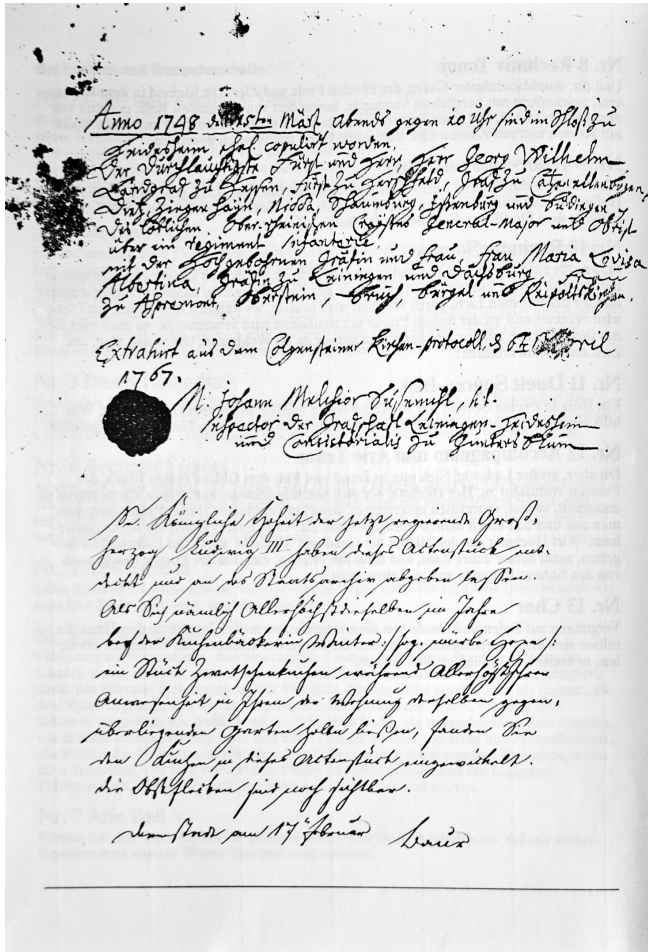 Anno 1748 den 15ten Mart. Abends gegen 10 Uhr sind im Schloß zu
Heidesheim ehel. copulirt worden,
Der Durchlauchtigste Fürst und Herr, Herr Georg Wilhelm
Landgraf zu Hessen, Fürst zu Herßfeld, Graf zu Catzenellenbogen,
Dietz, Ziegenhayn, Nidda, Schaumburg, Isenburg und Büdingen,
Des löblichen Ober-Rheinischen Crayßes General-Major und Obrist
über ein regiment Infanterie,
mit der Hochgebohrnen Gräfin und Frau, Frau Maria Louisa
Albertina, Gräfin zu Leiningen und Dachsburg, Frau
zu Aspremont, Oberstein, Bruch, Bürgel und Reipoltskirchen.
Extrahirt aus dem Colgensteiner Kirchen-protocoll, d. 6t. April
1767.
M. Johann Melchior
Inspector der Grafschaft Leiningen-Heidesheim
und Consistorialis zu Guntersblum
Se. Königliche Hoheit der jetzt regierende Groß-
herzog Ludwig III haben dieses Actenstück ent-
deckt und an das Staatsarchiv abgeben lassen.
Als Sich nämlich Allerhöchstdieselben im Jahre
bey der Kuchenbäckerin Winter /: sog. mürbe :/
ein Stück Zwetschenkuchen während Allerhöchstihrer
Anwesenheit in Ihrem der Wohnung derselben gegen-
überliegenden Garten holen ließen, fanden Sie
den Kuchen in dieses Actenstück eingewickelt.
die Obstflecken sind noch sichtbar.
Darmstadt am 17 Februar Baur